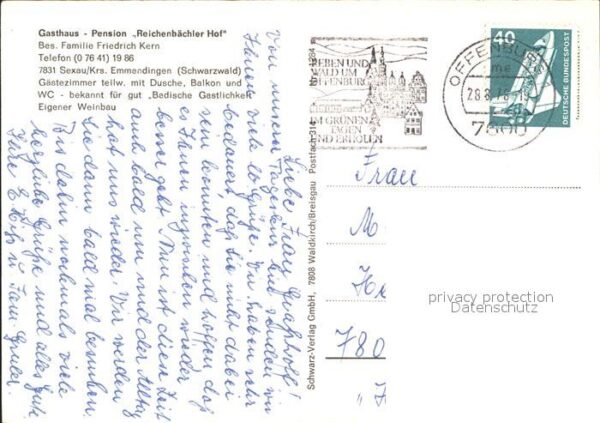 Gasthaus - Pension „Reichenbächler Hof"
Bes. Familie Friedrich Kern
Telefon (0 76 41) 19 86
7831 Sexau/Krs. Emmendingen (Schwarzwald)
Gästezimmer teilw. mit Dusche, Balkon und
WC - bekannt für gut „Badische Gastlichkeit"
Eigener Weinbau
Liebe Frau
Von unserer Tagestour
Ihnen viele lb Grüße. Wir haben sehr
bedauert, daß Sie nicht dabei
sein konnten und hoffen daß
es Ihnen inzwischen wieder
besser geht. Nun ist diese Zeit
auch bald um und der Alltag
hat uns wieder. Wir werden
Sie dann bald mal besuchen.
Bis dahin nochmals viele
herzliche Grüße und alles Gute
Ihre
Schwarz-Verlag GmbH, 7808 Waldkirch/Breisgau Postfach 314
REBEN UND
WALD UM
OFFENBURG
IM GRÜNEN
TAGEN
UND ERHOLEN
OFFENBURG
40
DEUTSCHE BUNDESPOST
Frau
M
780
privacy protection
Datenschutz